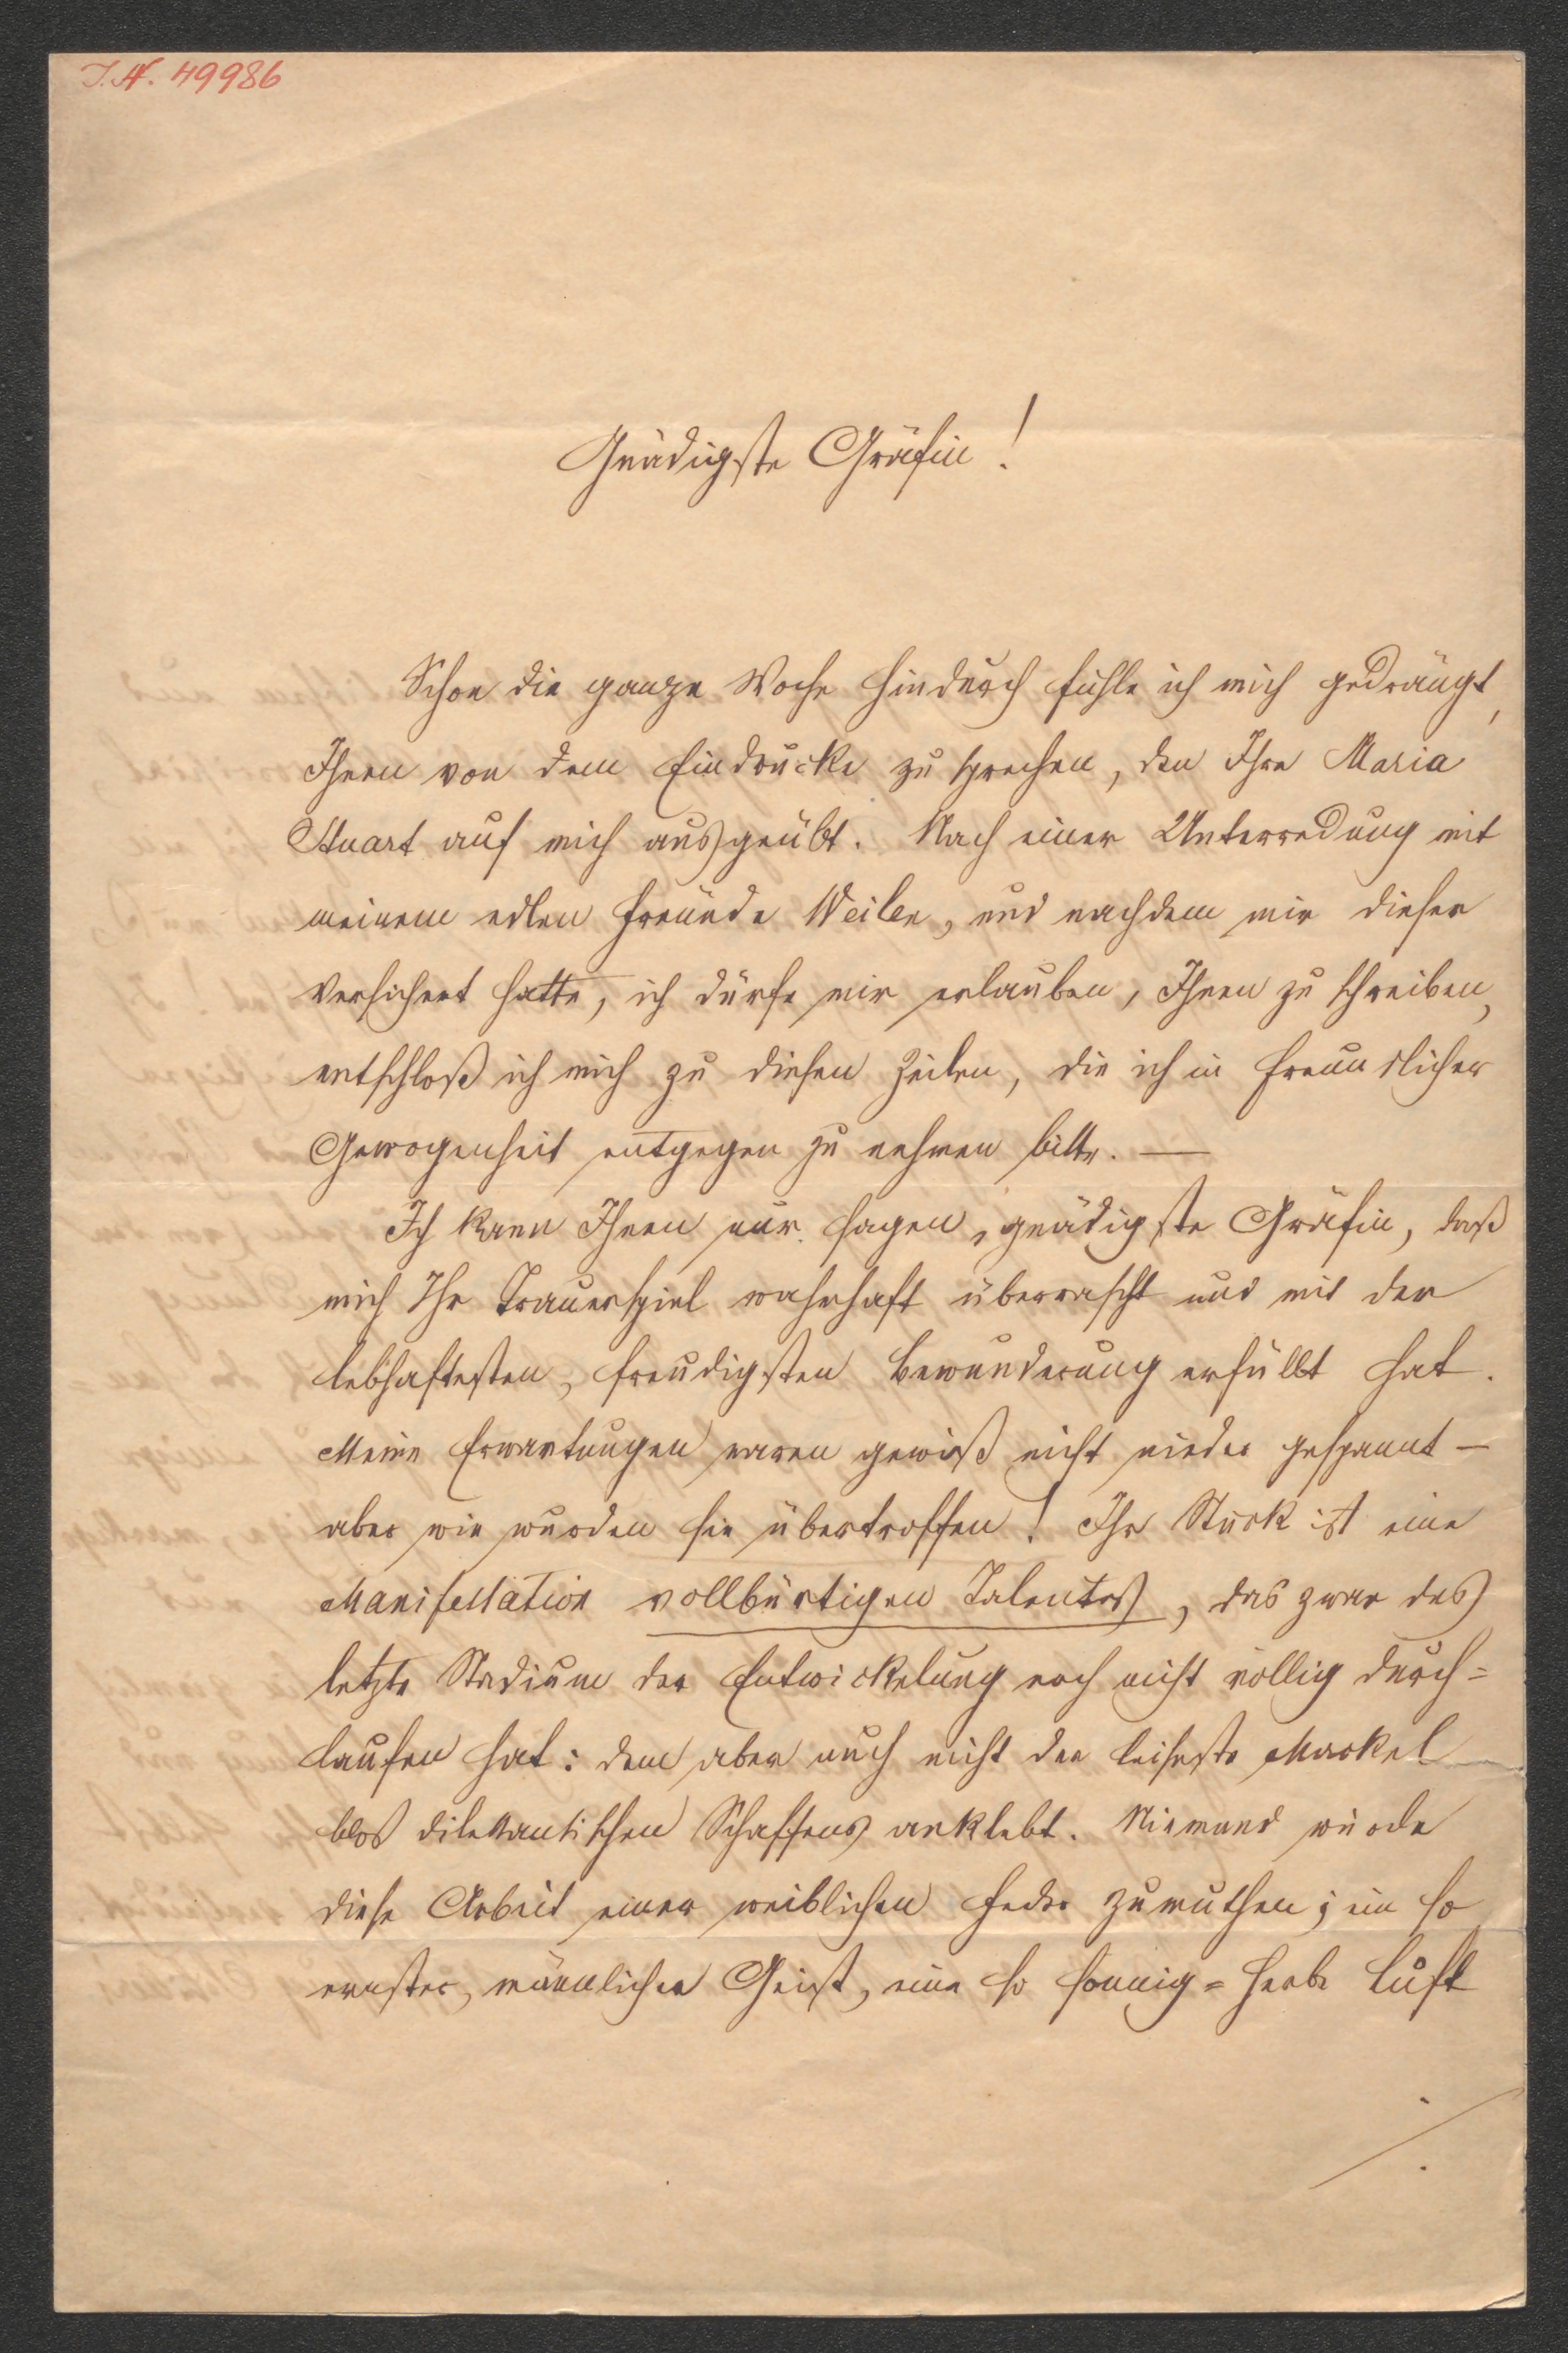 I.N. 49986
Gnädigste Gräfin!
Schon die ganze Woche hindurch fühle ich mich gedrängt,
Ihnen von dem Eindrucke zu sprechen, den Ihre Maria
Stuart auf mich ausgeübt. Nach einer Unterredung mit
meinem edlen Freunde Weilen, und nachdem mir dieser
versichert hatte, ich dürfe mir erlauben, Ihnen zu schreiben,
entschloß ich mich zu diesen Zeilen, die ich in freundlicher
Gewogenheit entgegen zu nehmen bitte. —
Ich kann Ihnen nur sagen, gnädigste Gräfin, daß
mich Ihr Trauerspiel wahrhaft überrascht und mit der
lebhaftesten, freudigsten Bewunderung erfüllt hat.
Meine Erwartungen waren gewiß nicht nieder gespannt —
aber wie wurden sie übertroffen! Ihr Stück ist eine
Manifestation vollbürtigen Talentes, das zwar das
letzte Stadium der Entwickelung noch nicht völlig durch=
laufen hat: dem aber auch nicht der leiseste Mackel
blos dilettantischen Schaffens anklebt. Niemand würde
diese Arbeit einer weiblichen Feder zumuthen; ein so
ernster, männlicher Geist, eine so sonnig=herbe Luft
./.